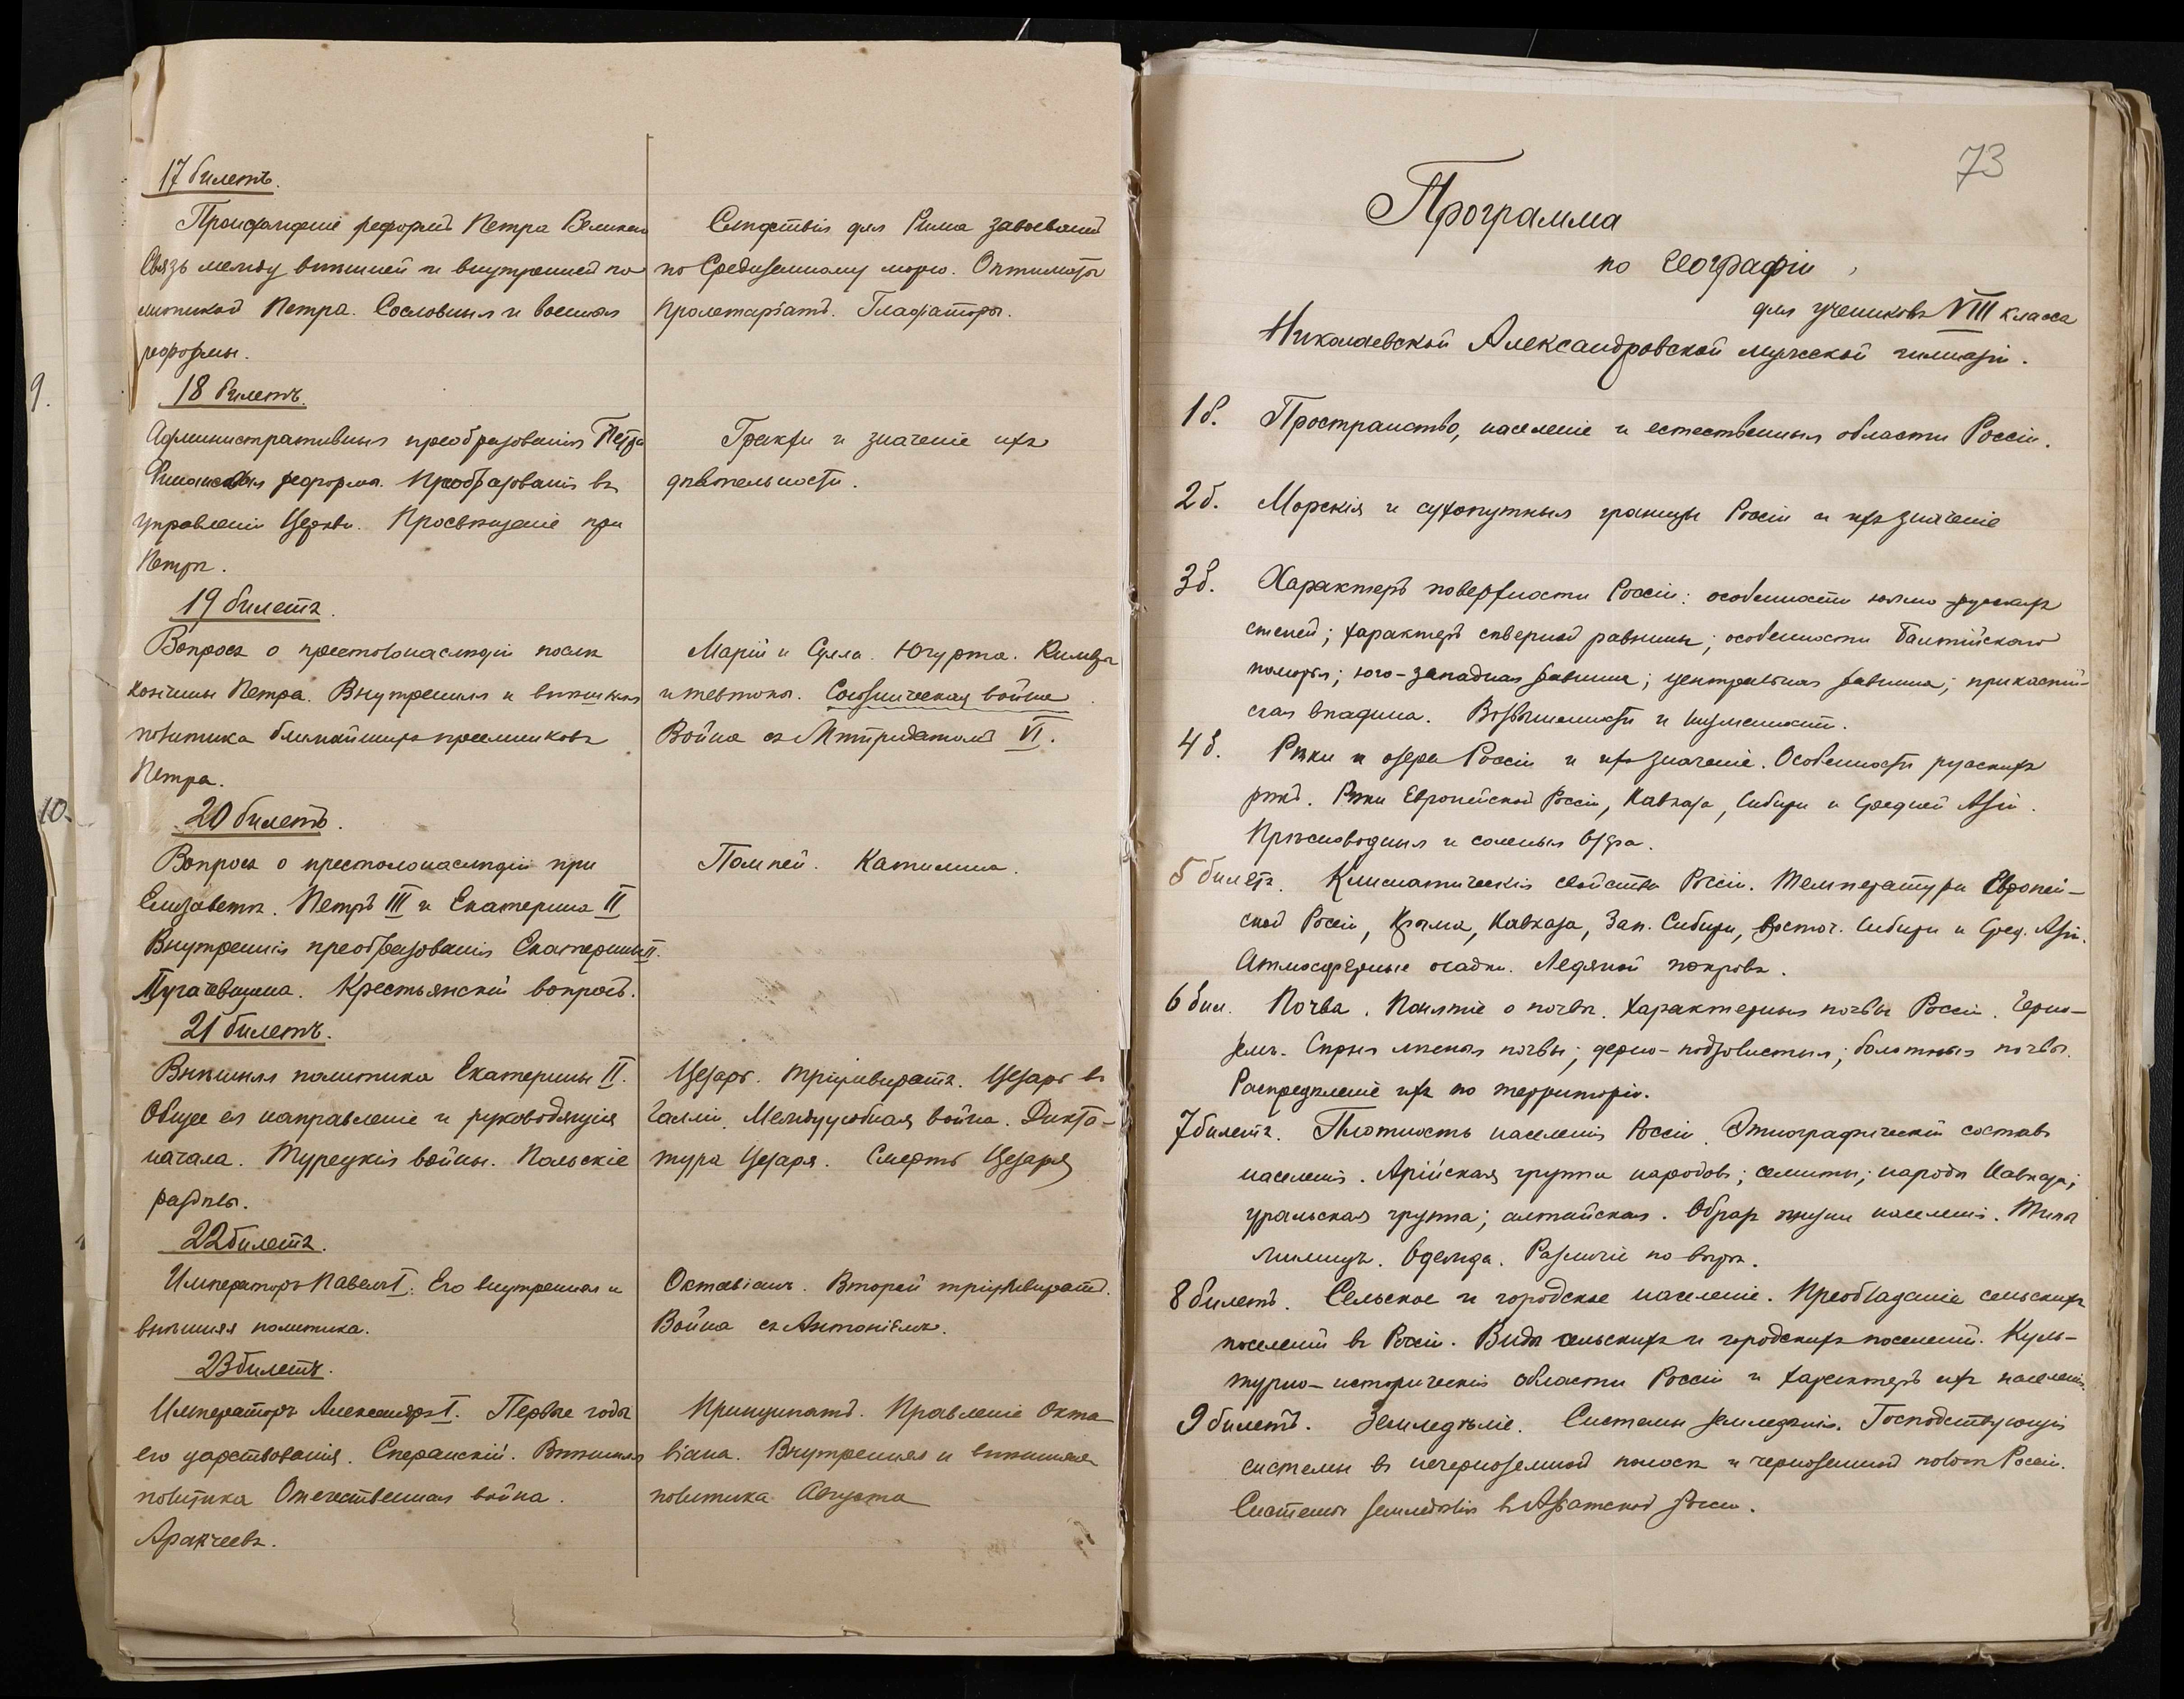 17 билетъ.
Происхожденіе реформъ Петра Великаго
Связь между внѣшней и внутренней по
литикой Петра. Сословныя и военныя
реформы.
Слѣдствія для Рима завоеваній
по Средиземному морю. Оптиматы
Пролетаріатъ. Гладіаторы.
18 билетъ.
Административныя преобразованія Петра
Финансовая реформа. Преобразованія въ
управленіи Церкви. Просвѣщеніе при
Петрѣ.
Гракхи и значеніе ихъ
дѣятельности.
19 билетъ.
Вопросъ о престолонаслѣдіи послѣ
кончины Петра. Внутренняя и внѣшняя
политика ближайшихъ преемниковъ
Петра.
Марій и Сулла. Югурта. Кимвры
и тевтоны. Союзническая война.
Война съ Митридатомъ VI.
20 билетъ.
Вопросъ о престолонаслѣдіи при
Елизаветѣ. Петръ III и Екатерина II
Внутреннія преобразованія Екатерины II.
Пугачевщина. Крестьянскій вопросъ.
Помпей. Катилина.
21 билетъ.
Внѣшняя политика Екатерины II.
Общее ея направленіе и руководящія
начала. Турецкія войны. Польскіе
раздѣлы.
Цезарь. Тріумвиратъ. Цезарь въ
Галліи. Междуусобная война. Дикта-
тура Цезаря. Смерть Цезаря
22 билетъ.
Императоръ Павелъ I. Его внутренняя и
внѣшняя политика.
Октавіанъ. Второй тріумвиратъ.
Война съ Антоніемъ.
23 билетъ.
Императоръ Александръ I. Первые годы
его царствованія. Сперанскій. Внѣшняя
политика Отечественная война.
Аракчеевъ.
Принципатъ. Правленіе Окта
віана. Внутренняя и внѣшняя
политика Августа
9.
10.
73
Программа
по географіи
для учениковъ VIII класса
Николаевской Александровской мужской гимназіи.
1 б. Пространство, населеніе и естественныя области Россіи.
2 б. Морскія и сухопутныя границы Россіи и ихъ значеніе
3 б. Характеръ поверхности Россіи: особенности южно-русскихъ
степей; характеръ сѣверной равнины; особенности Балтійскаго
поморья; юго-западная равнина; центральная равнина; прикаспій-
ская впадина. Возвышенности и низменности.
4 б. Рѣки и озера Россіи и ихъ значеніе. Особенности русскихъ
рѣкъ. Рѣки Европейской Россіи, Кавказа, Сибири и Средней Азіи.
Прѣсноводныя и соленыя озера.
5 билетъ. Климатическія свойства Россіи. Температура Европей-
ской Россіи, Крыма, Кавказа, Зап. Сибири, Восточ. Сибири и Сред. Азіи.
Атмосферные осадки. Ледяной покровъ.
6 бил. Почва. Понятіе о почвѣ. Характерныя почвы Россіи. Черно-
земъ. Сѣрыя лѣсныя почвы; дерно-подзолистыя; болотныя почвы.
Распредѣленіе ихъ по территоріи.
7 билетъ. Плотность населенія Россіи. Этнографическій составъ
населенія. Арійская группа народовъ; семиты; народы Кавказа;
уральская группа; алтайская. Образъ жизни населенія. Типы
жилищъ. Одежда. Различіе по вѣрѣ.
8 билетъ. Сельское и городское населеніе. Преобладаніе сельскихъ
поселеній въ Россіи. Виды сельскихъ и городскихъ поселеній. Куль-
турно-историческія области Россіи и характеръ ихъ населенія.
9 билетъ. Земледѣліе. Системы земледѣлія. Господствующія
системы въ нечерноземной полосѣ и черноземной полосѣ Россіи.
Системы земледѣлія въ Азіатской Россіи.